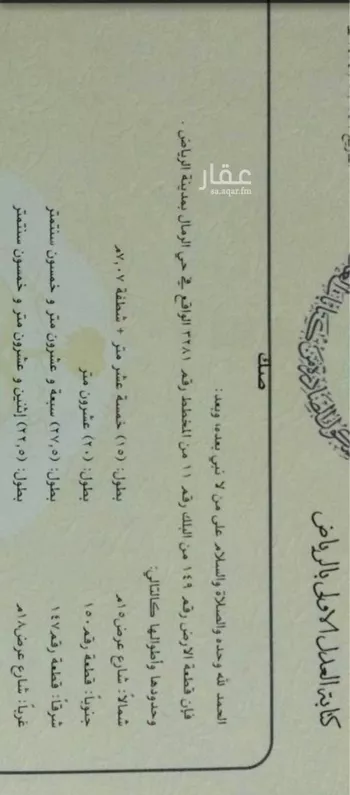 كتابة العدل الاولى بالرياض
صك
الحمد لله وحده والصلاة والسلام على من لا نبي بعده، وبعد:
فإن قطعة الارض رقم ١٤٩ من البلك رقم ١١ من المخطط رقم ٣٢٨١ الواقع في حي الرمال بمدينة الرياض .
وحدودها وأطوالها كالتالي:
شمالاً: شارع عرض ١٥م بطول: (١٥) خمسة عشر متر + شطفة ٧,٠٧م
جنوباً: قطعة رقم ١٥٠ بطول: (٢٠) عشرون متر
شرقاً: قطعة رقم ١٤٧ بطول: (٢٧,٥) سبعة و عشرون متر و خمسون سنتمتر
غرباً: شارع عرض ١٨م بطول: (٢٢,٥) إثنين و عشرون متر و خمسون سنتمتر
عقار
sa.aqar.fm